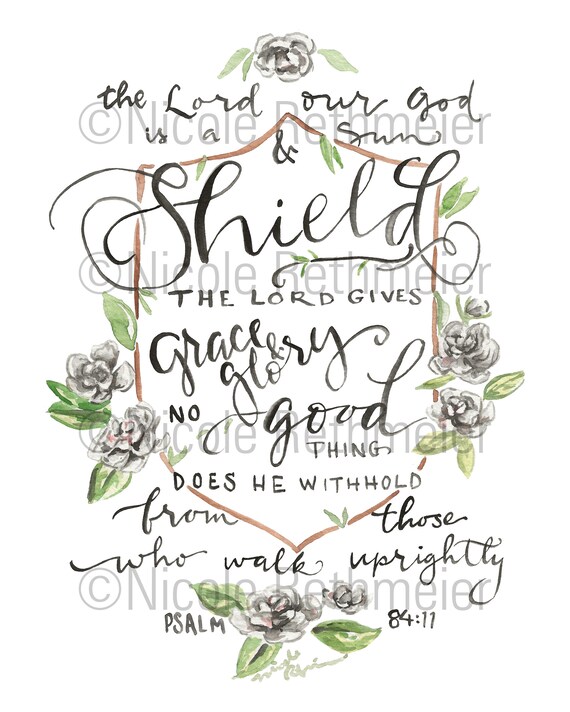 the Lord our God
©Nicole Rethmeier
is a & Sun
Shield
©Nicole Rethmeier
THE LORD GIVES
grace & glory
NO good
©Nicole Rethmeier
THING
DOES HE WITHHOLD
from those
who walk uprightly
©Nicole Rethmeier
PSALM 84:11